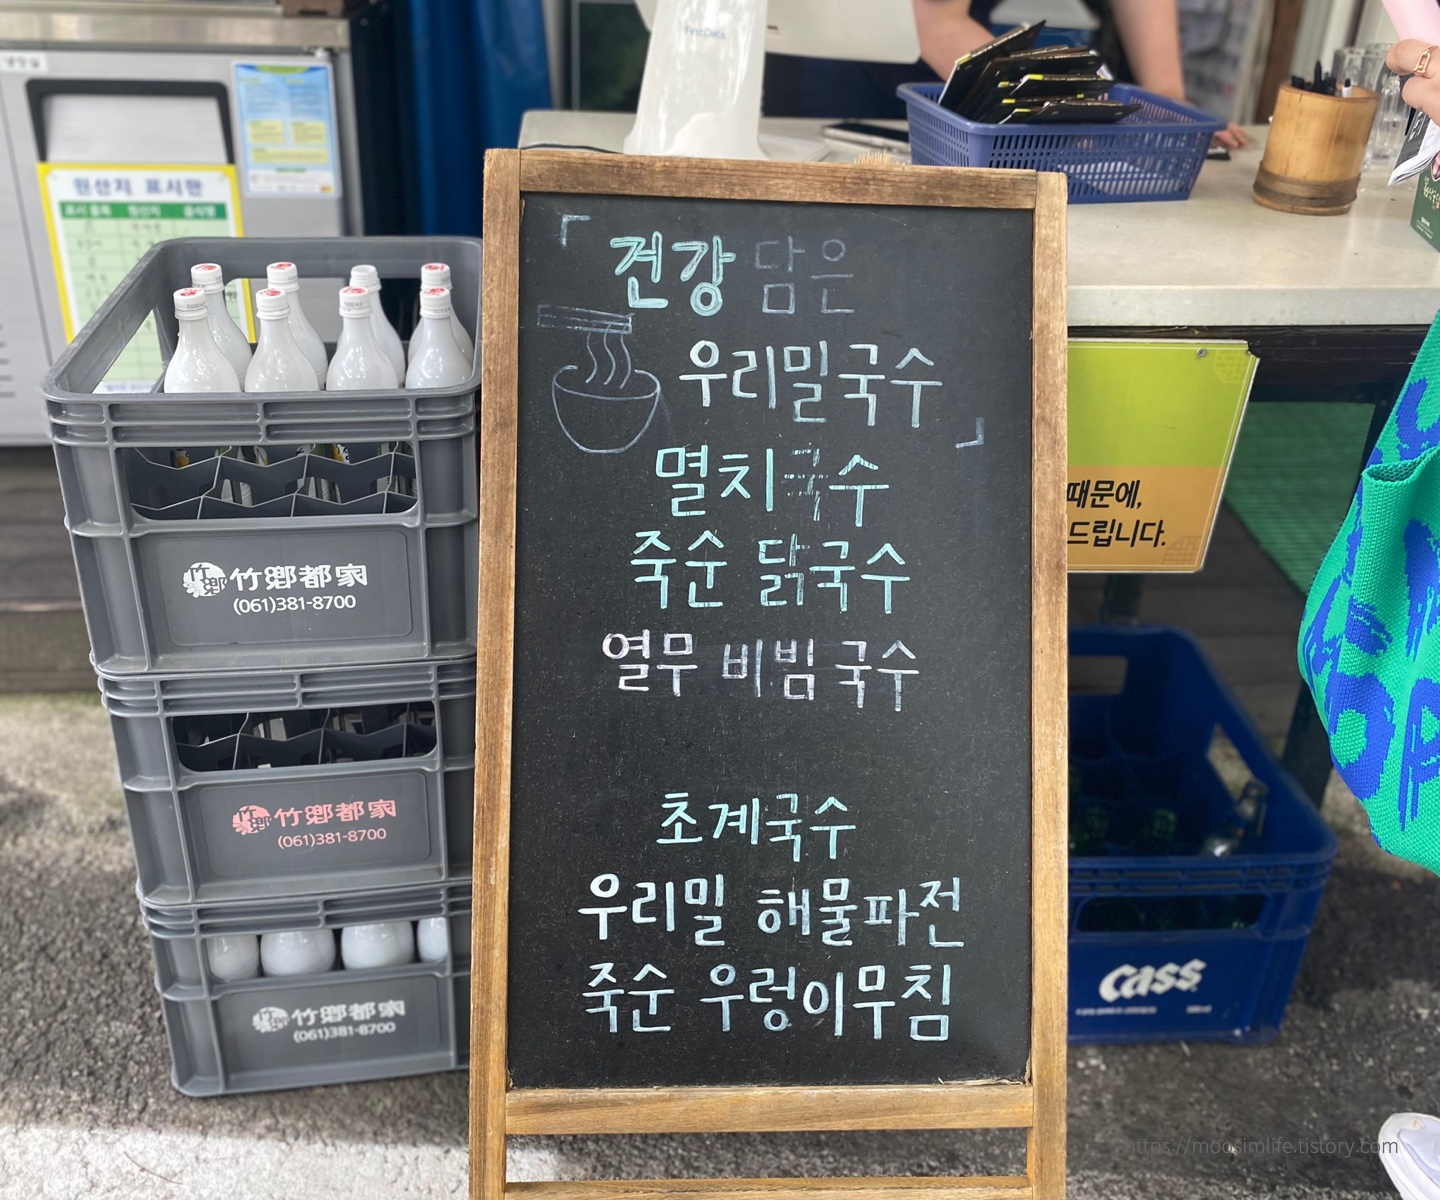 First Data
원산지 표시판
「 건강 담은
우리밀국수 」
멸치국수
죽순 닭국수
열무 비빔국수
초계국수
우리밀 해물파전
죽순 우렁이무침
竹鄕都家
(061)381-8700
竹鄕都家
(061)381-8700
竹鄕都家
(061)381-8700
때문에,
드립니다.
Cass
https://moosimlife.tistory.com